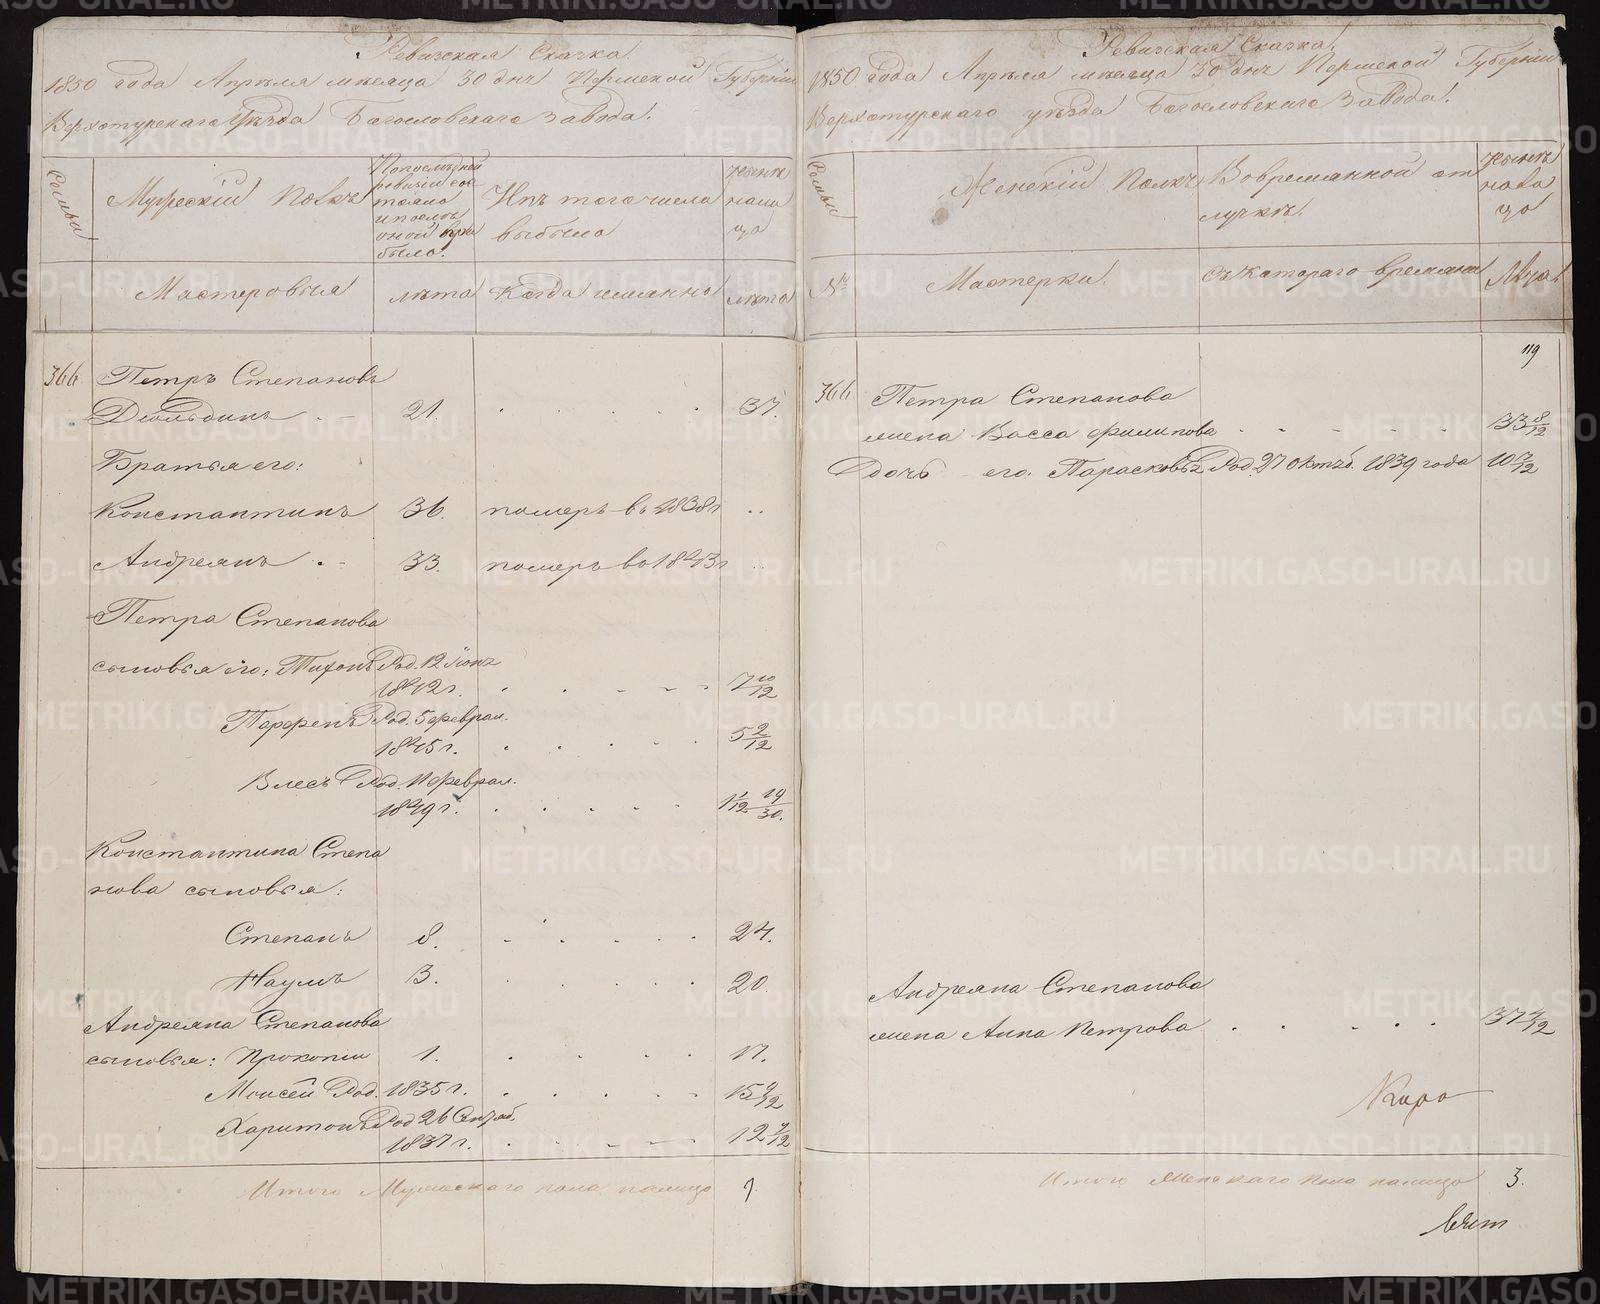 Ревизская Сказка
1850 года Апреля месяца 30 дня Пермской Губернии
Верхотурскаго Уезда Богословскаго Завода.
Семьи
Мужеский Полъ
По последней
ревизии сос
тояло
и после
оной при
было.
Изъ того числа
выбыло
Ныне
нали
цо
Мастеровыя
лета
Когда именно
лета
366
Петръ Степановъ
21.
37.
Братья его:
Константинъ
36.
померъ въ 1838 г
Андреянъ
33.
померъ въ 1843 г
Петра Степанова
сыновья его: Тихонъ Род. 12 Іюня
1842 г.
7 10/12
Парфенъ Род. 5 феврал.
1845 г.
5 2/12
Власъ Род. 11 феврал.
1849 г.
1 1/12 19/30.
Константина Степа
нова сыновья:
Степанъ
8.
24.
Наумъ
3.
20
Андреяна Степанова
сыновья: Прокопій
1.
17.
Моисей Род. 1835 г.
15 4/12
Харитонъ Род 26 Сентяб.
1837 г.
12 7/12
Итого Мужескаго пола налицо
9
Ревизская Сказка.
1850 года Апреля месяца 30 дня Пермской Губернии
Верхотурскаго уезда Богословскаго Завода.
Семьи
Женский Полъ
Во временной от
лучке.
Ныне
нали
цо
№
Мастерки.
Съ котораго времяни
Лета
119
366
Петра Степанова
жена Васса Филипова
33 8/12
Дочь его: Парасковья Род. 27 октяб. 1839 года
10 7/12
Андреяна Степанова
жена Анна Петрова
37 4/12
Итого Женскаго Пола налицо
3.
METRIKI.GASO-URAL.RU